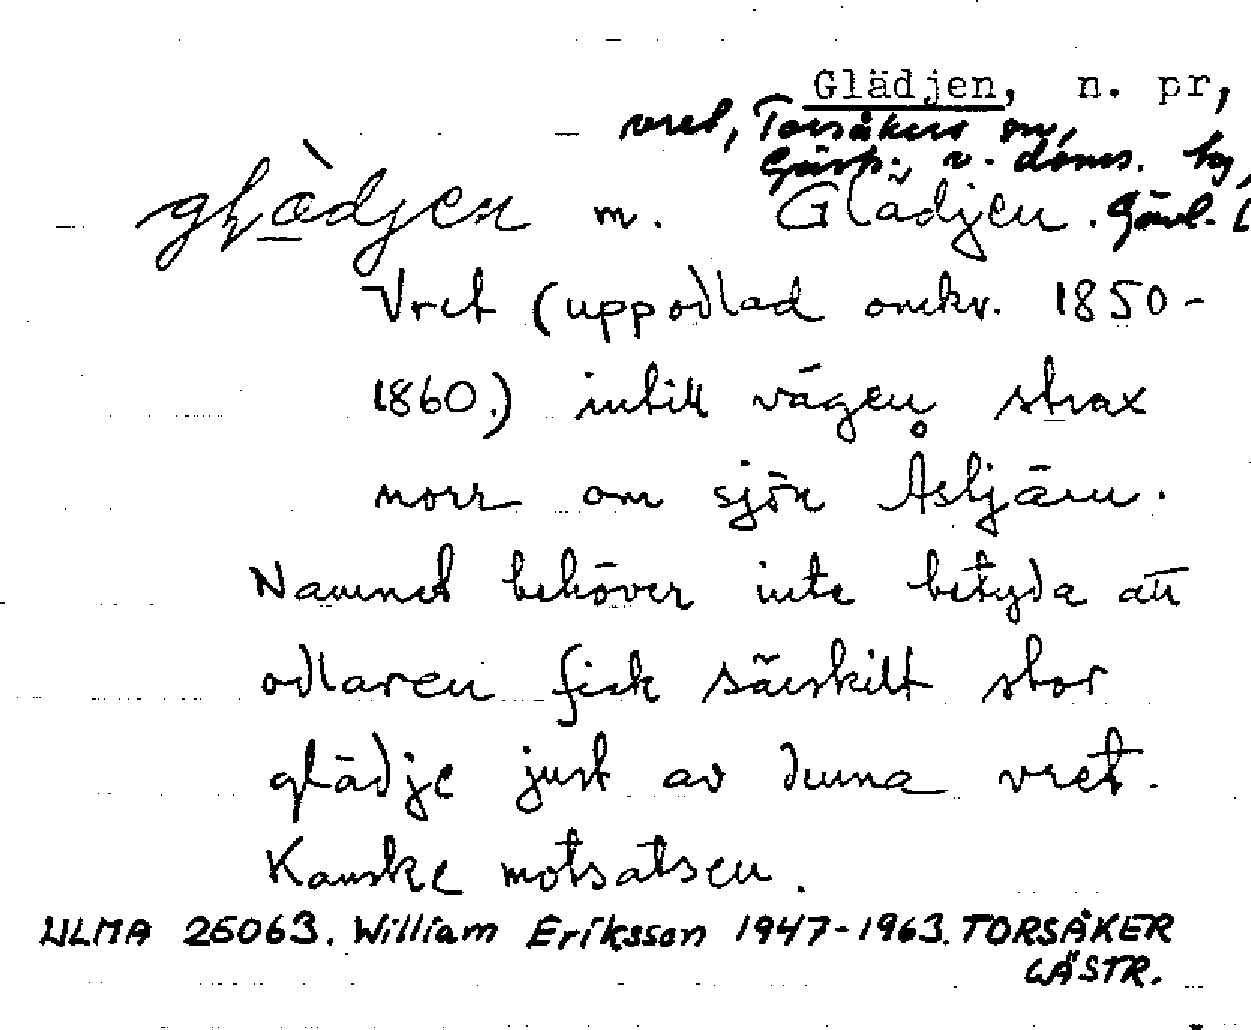 Glädjen, n. pr,
vret, Torsåkers sn,
Gästr. v. doms. hg,
glædjen m. Glädjen. Gävl. l
Vret (uppodlad omkr. 1850-
1860.) intill vägen strax
norr om sjön Åstjärn.
Namnet behöver inte betyda att
odlaren fick särskilt stor
glädje just av denna vret.
Kanske motsatsen.
ULMA 25063. William Eriksson 1947-1963. TORSÅKER
GÄSTR.